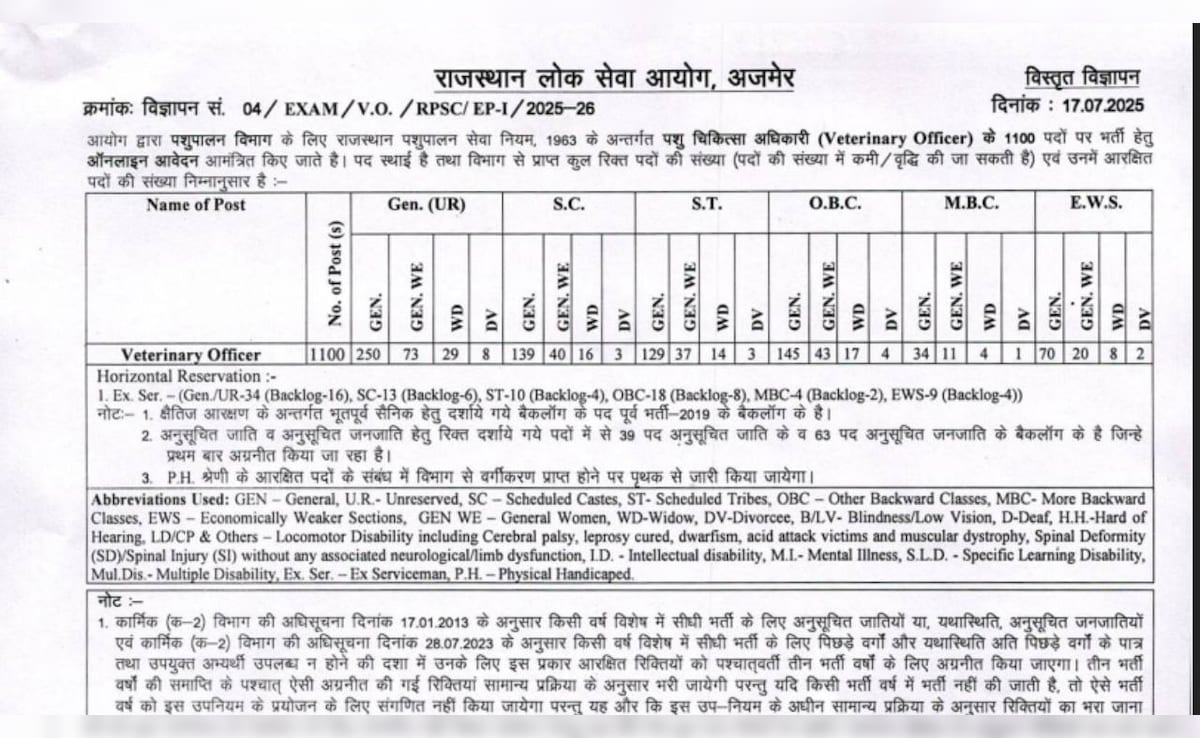 राजस्थान लोक सेवा आयोग, अजमेर
विस्तृत विज्ञापन
क्रमांकः विज्ञापन सं. 04/ EXAM/V.O. /RPSC/EP-I/2025-26
दिनांक : 17.07.2025
आयोग द्वारा पशुपालन विभाग के लिए राजस्थान पशुपालन सेवा नियम, 1963 के अन्तर्गत पशु चिकित्सा अधिकारी (Veterinary Officer) के 1100 पदों पर भर्ती हेतु
ऑनलाइन आवेदन आमंत्रित किए जाते है। पद स्थाई है तथा विभाग से प्राप्त कुल रिक्त पदों की संख्या (पदों की संख्या में कमी/वृद्धि की जा सकती है) एवं उनमें आरक्षित
पदों की संख्या निम्नानुसार है :–
Name of Post No. of Post (s) Gen. (UR) S.C. S.T. O.B.C. M.B.C. E.W.S.
GEN. GEN. WE WD DV GEN. GEN. WE WD DV GEN. GEN. WE WD DV GEN. GEN. WE WD DV GEN. GEN. WE WD DV GEN. GEN. WE WD DV
Veterinary Officer 1100 250 73 29 8 139 40 16 3 129 37 14 3 145 43 17 4 34 11 4 1 70 20 8 2
Horizontal Reservation :-
1. Ex. Ser. – (Gen./UR-34 (Backlog-16), SC-13 (Backlog-6), ST-10 (Backlog-4), OBC-18 (Backlog-8), MBC-4 (Backlog-2), EWS-9 (Backlog-4))
नोटः– 1. क्षैतिज आरक्षण के अन्तर्गत भूतपूर्व सैनिक हेतु दर्शाये गये बैकलॉग के पद पूर्व भर्ती–2019 के बैकलॉग के है।
2. अनुसूचित जाति व अनुसूचित जनजाति हेतु रिक्त दर्शाये गये पदों में से 39 पद अनुसूचित जाति के व 63 पद अनुसूचित जनजाति के बैकलॉग के है जिन्हे
प्रथम बार अग्रनीत किया जा रहा है।
3. P.H. श्रेणी के आरक्षित पदों के संबंध में विभाग से वर्गीकरण प्राप्त होने पर पृथक से जारी किया जायेगा।
Abbreviations Used: GEN – General, U.R.- Unreserved, SC – Scheduled Castes, ST- Scheduled Tribes, OBC – Other Backward Classes, MBC- More Backward
Classes, EWS – Economically Weaker Sections, GEN WE – General Women, WD-Widow, DV-Divorcee, B/LV- Blindness/Low Vision, D-Deaf, H.H.-Hard of
Hearing, LD/CP & Others – Locomotor Disability including Cerebral palsy, leprosy cured, dwarfism, acid attack victims and muscular dystrophy, Spinal Deformity
(SD)/Spinal Injury (SI) without any associated neurological/limb dysfunction, I.D. - Intellectual disability, M.I.- Mental Illness, S.L.D. - Specific Learning Disability,
Mul.Dis.- Multiple Disability, Ex. Ser. – Ex Serviceman, P.H. – Physical Handicaped.
नोट :–
1. कार्मिक (क–2) विभाग की अधिसूचना दिनांक 17.01.2013 के अनुसार किसी वर्ष विशेष में सीधी भर्ती के लिए अनुसूचित जातियों या, यथास्थिति, अनुसूचित जनजातियों
एवं कार्मिक (क–2) विभाग की अधिसूचना दिनांक 28.07.2023 के अनुसार किसी वर्ष विशेष में सीधी भर्ती के लिए पिछड़े वर्गो और यथास्थिति अति पिछड़े वर्गो के पात्र
तथा उपयुक्त अभ्यर्थी उपलब्ध न होने की दशा में उनके लिए इस प्रकार आरक्षित रिक्तियों को पश्चातवर्ती तीन भर्ती वर्षों के लिए अग्रनीत किया जाएगा। तीन भर्ती
वर्षो की समाप्ति के पश्चात् ऐसी अग्रनीत की गई रिक्तियां सामान्य प्रक्रिया के अनुसार भरी जायेगी परन्तु यदि किसी भर्ती वर्ष में भर्ती नहीं की जाती है, तो ऐसे भर्ती
वर्ष को इस उपनियम के प्रयोजन के लिए संगणित नहीं किया जायेगा परन्तु यह और कि इस उप–नियम के अधीन सामान्य प्रक्रिया के अनुसार रिक्तियों का भरा जाना